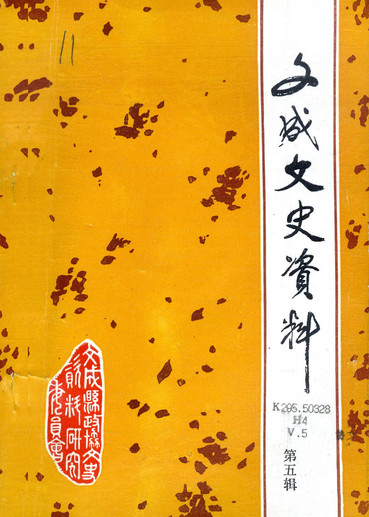 文成文史资料
K295.50328
H4
V.5
第五辑
文成縣政协文史
資料研究
委員會
11